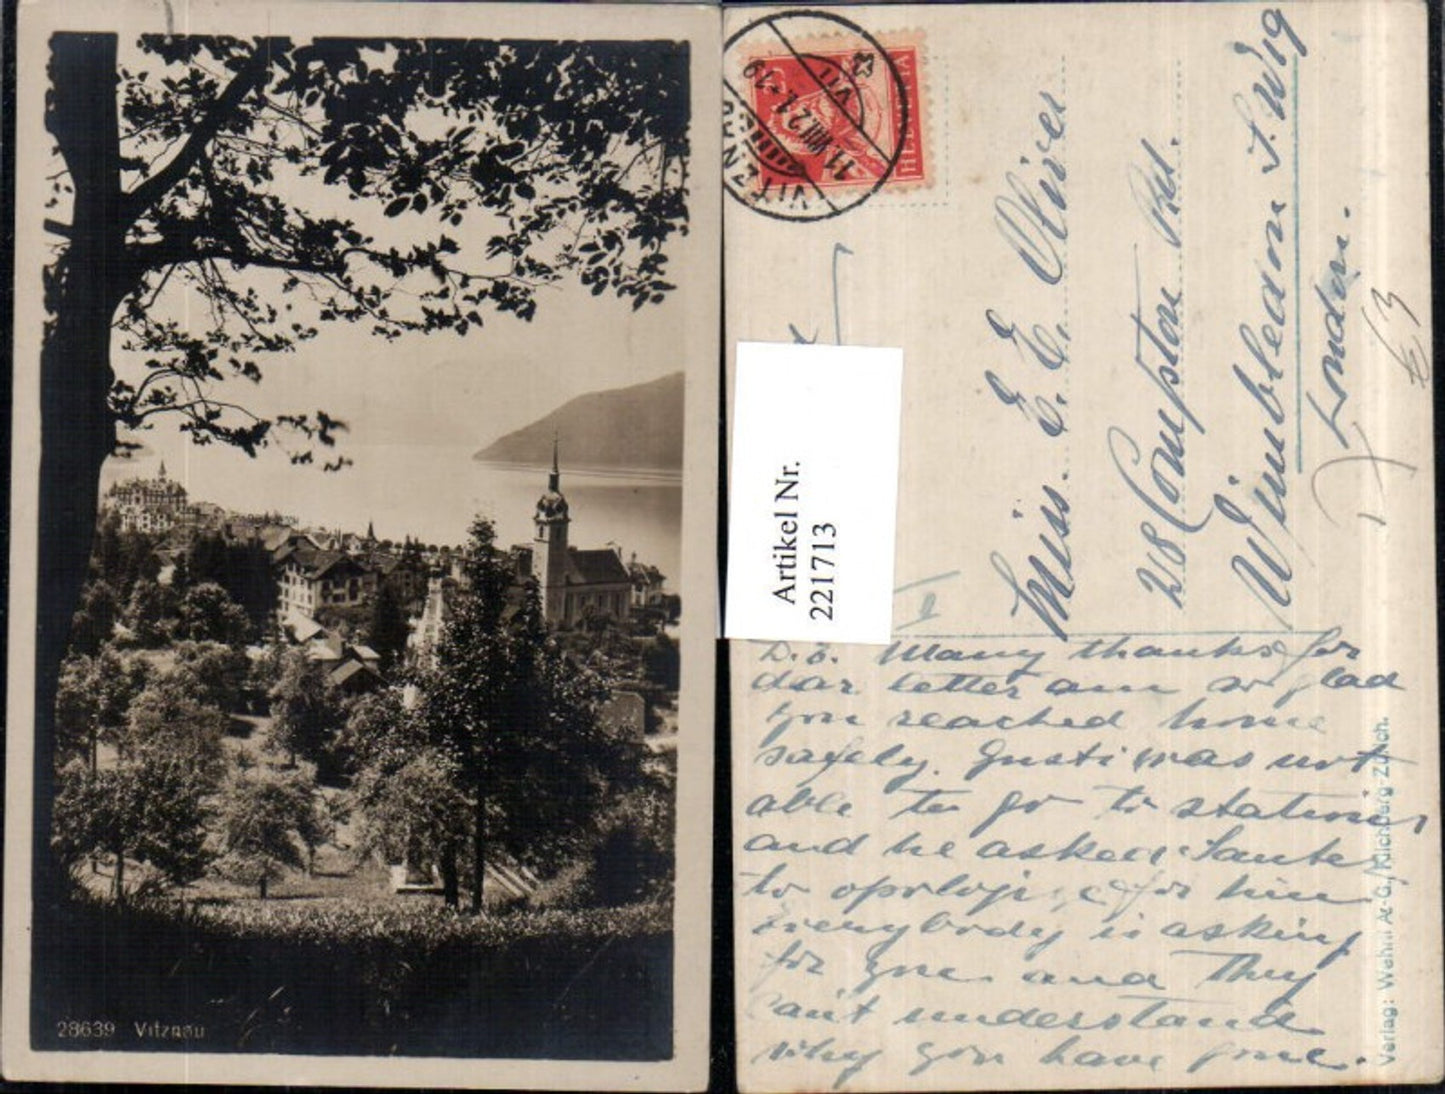 28639 Vitznau
HELVETIA
VITZNAU
11.VIII 21
Artikel Nr.
221713
Miss. E. E. Oliver
28 Compton Rd.
Wimbledon S.W19
London.
€3
II
Many thanks for
dear letter am so glad
you reached home
safely. Gusti was not
able to go to station
and he asked
to apologise for him
Everybody is asking
for you and they
can't understand
why you have gone.
Verlag: Wehrli A.-G., Kilchberg-Zürich.